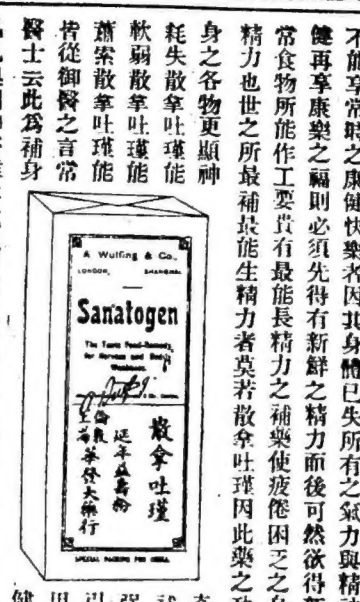 不能享常時之康健快樂者因其身體已失所有之氣力與精
健再享康樂之福則必須先得有新鮮之精力而後可然欲得
常食物所能作工要貴有最能長精力之補藥使疲倦困乏之
精力也世之所最補最能生精力者莫若散拿吐瑾因此藥之
身之各物更顯神
耗失散拿吐瑾能
軟弱散拿吐瑾能
蕭索散拿吐瑾能
皆從御醫之言常
醫士云此爲補身
A Wulfing & Co.,
LONDON, SHANGHAI.
Sanatogen
The Tonic Food-Remedy,
for Nervous and Bodily
Weakness.
散拿吐瑾
延年益壽粉
倫敦
上海 華發大藥行
SPECIAL PACKING FOR CHINA.